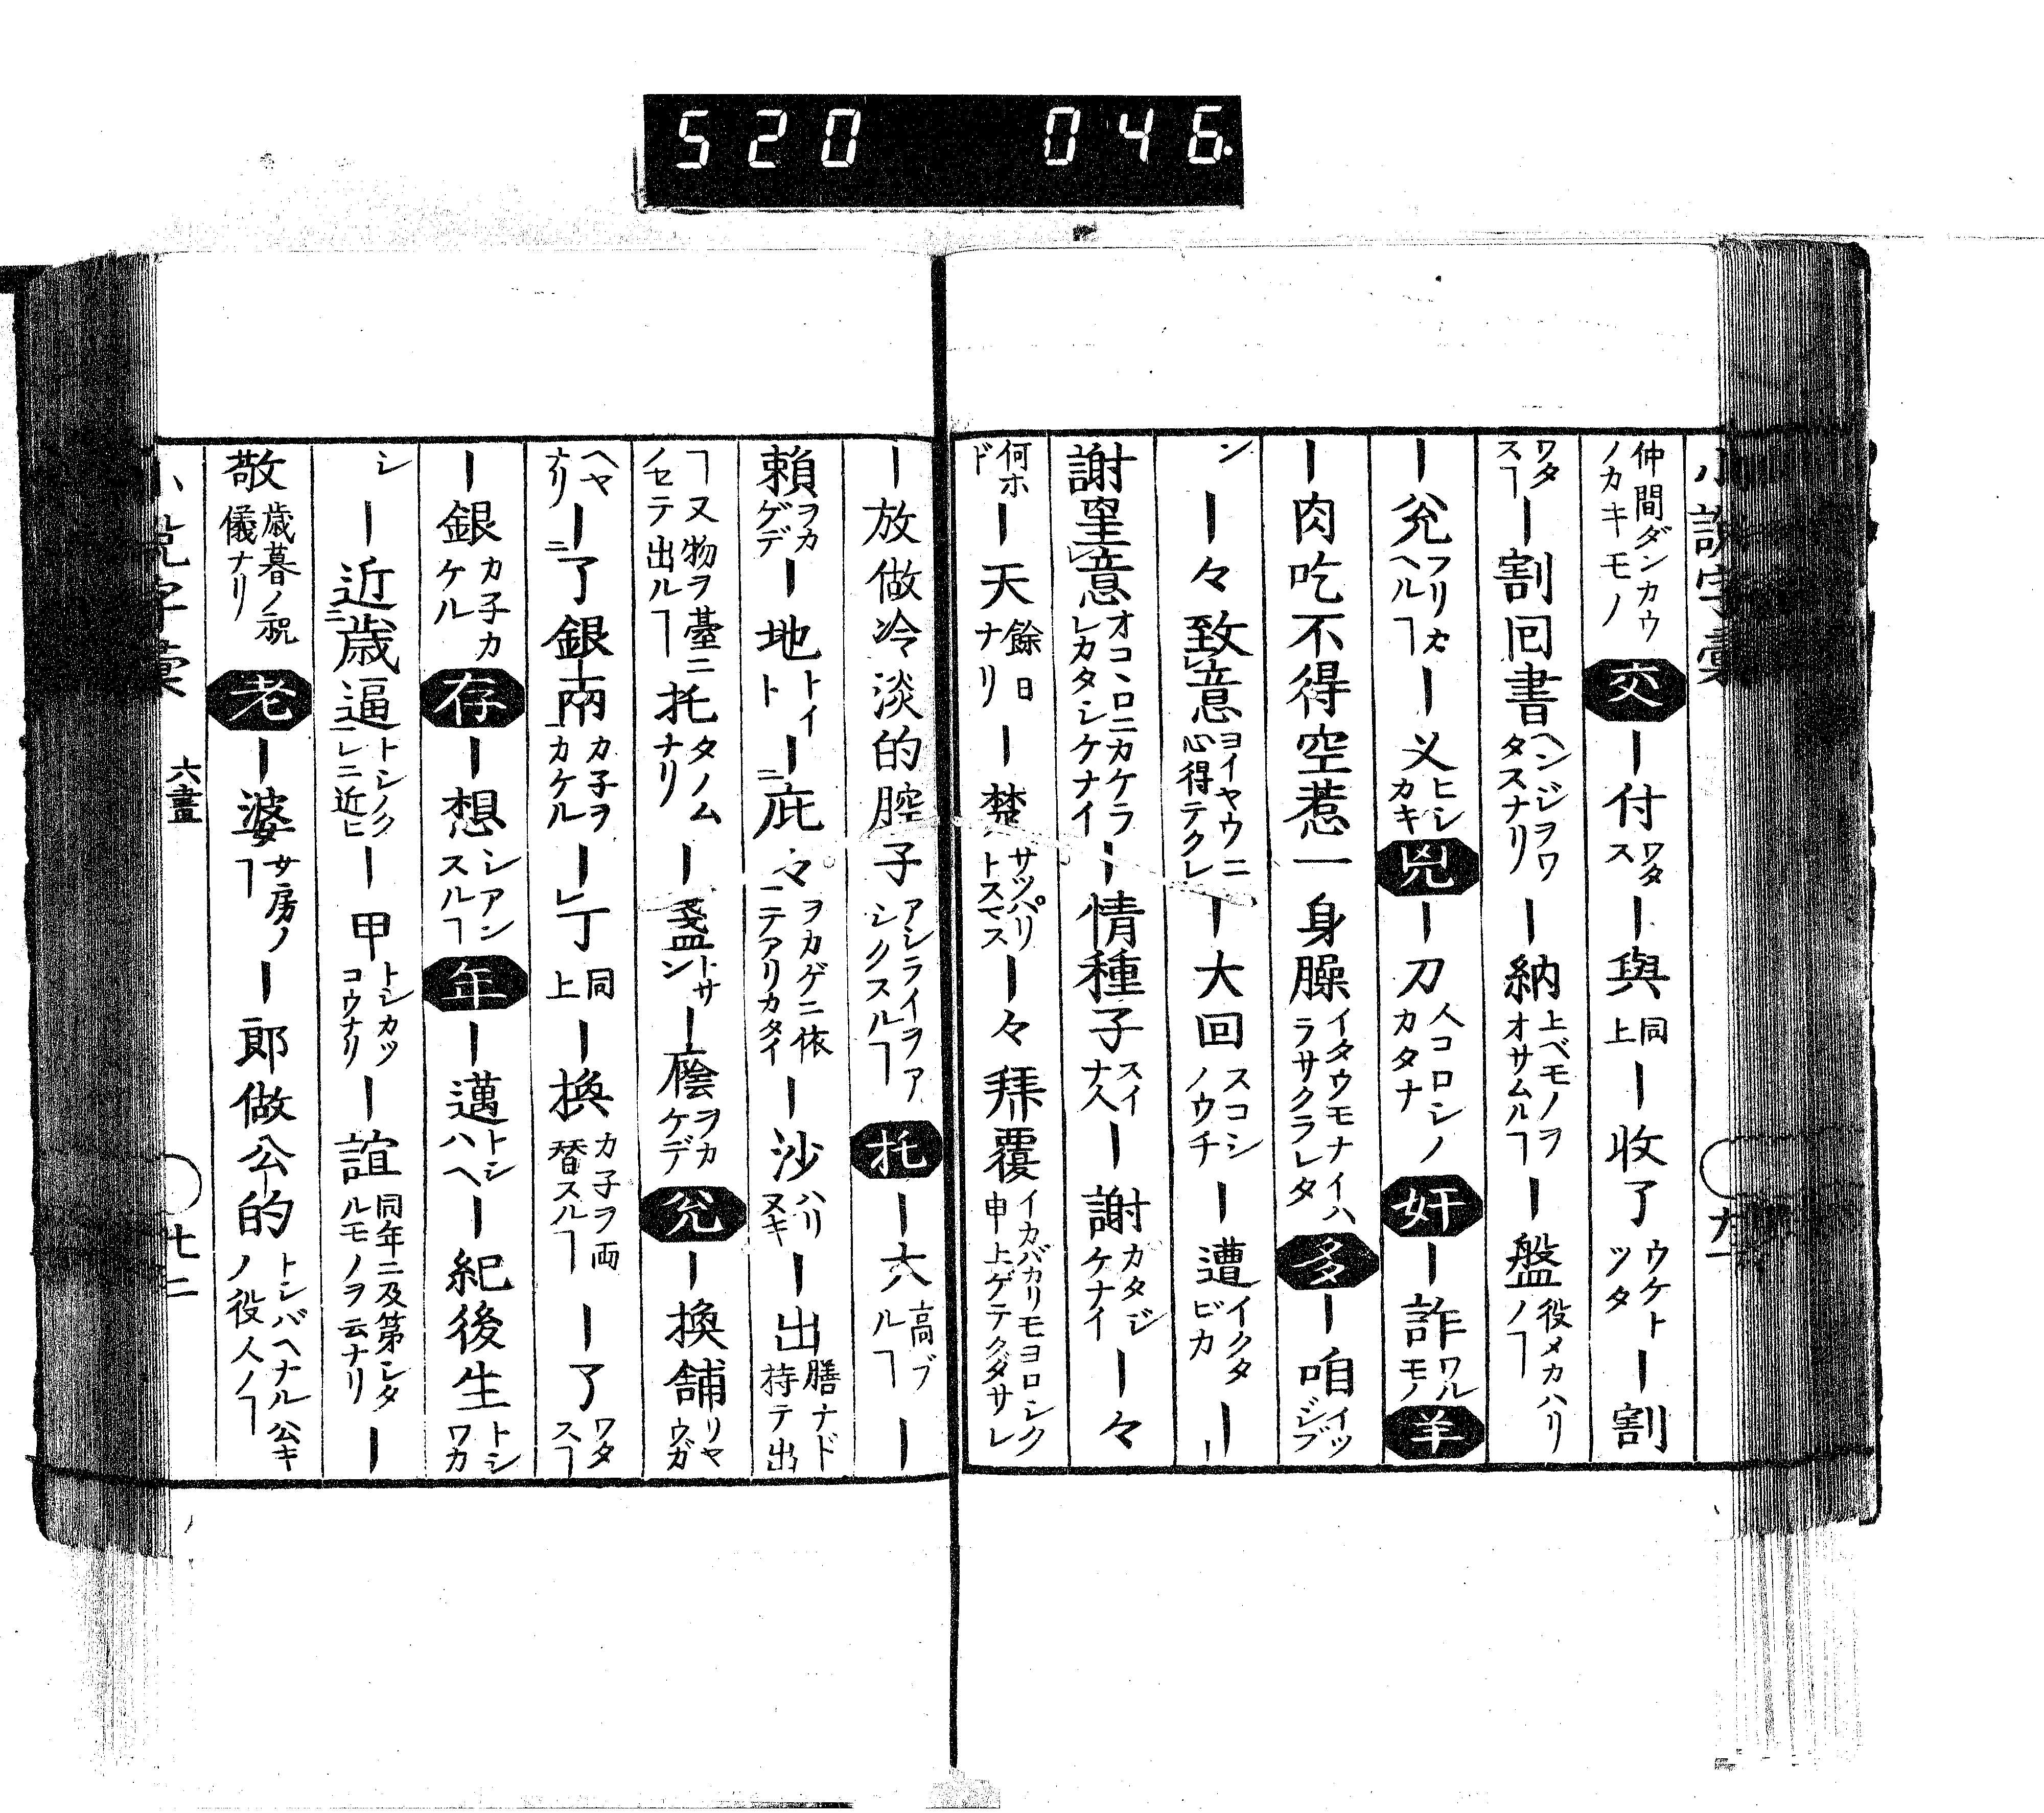 520 046.
小説字彙
仲間ダンカウノカキモノ 交 ー付ワタス ー與同上 ー收了ウケトツタ ー割
ワタスヿ ー割回書ヘンジヲワタスナリ ー納上ベモノヲオサムルヿ ー盤役メカハリノヿ
ー兊フリカヘルヿ ー义ヒシカキ 兇 ー刀人コロシノカタナ 奸 ー詐ワルモノ 羊
ー肉吃不得空惹一身臊イタウモナイハラサクラレタ 多 ー咱イツジブ
ン ー々致意ヨイヤウニ心得テクレ ー大回スコシノウチ ー遭イクタビカ ー
謝望意オコヽロニカケラレカタシケナイ ー情種子スイナ人 ー謝カタジケナイ ー々
何ホド ー天餘日ナリ ー楚サツパリトスマス ー々拜覆イカバカリモヨロシク申上ゲテクダサレ
ー放做冷淡的腔子アシライヲアシクスルヿ 托 ー大高ブルヿ ー
賴ヲカゲデ ー地トイト ー庇々ヲカゲニ依ニテアリカタイ ー沙ハリヌキ ー出膳ナド持テ出
ヿ又物ヲ臺ニノセテ出ルヿ 托タノムナリ ー盞トサン ー廕ヲカケデ 兊 ー換舗リヤウガ
ヘヤナリ ー了銀兩カ子ヲカケル ー丁同上 ー換カ子ヲ両替スルヿ ー了ワタスヿ
ー銀カ子カケル 存 ー想シアンスルヿ 年 ー邁トシハヘ ー紀後生トシワカ
シ ー近歳逼トシノクレニ近ヒ ー甲トシカツコウナリ ー誼同年ニ及第シタルモノヲ云ナリ ー
敬歳暮ノ祝儀ナリ 老 ー婆サ房ノヿ ー郎做公的トシバヘナル公キノ役人ノヿ
小説字彙 六畫 廿二